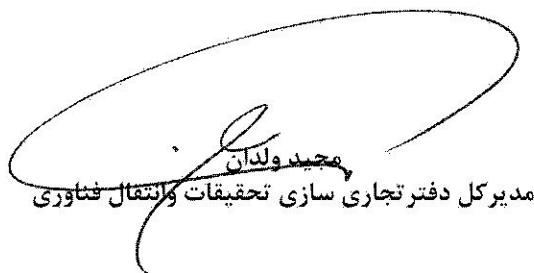 مجید ولدان
مدیرکل دفتر تجاری سازی تحقیقات وانتقال فناوری